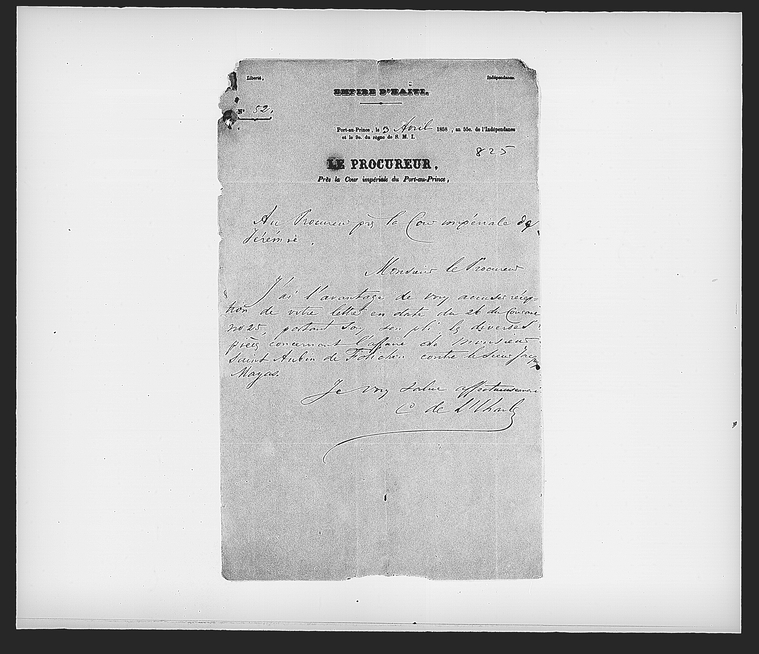 Liberté, Indépendance
EMPIRE D'HAÏTI.
N° 52.
Port-au-Prince, le 3 Avril 1858, an 55e. de l'Indépendance
et le 9e. du règne de S. M. I.
825
LE PROCUREUR,
Près la Cour impériale du Port-au-Prince,
Au Procureur près la Cour impériale de
Jérémie.
Monsieur le Procureur
J'ai l'avantage de vous accuser récep-
tion de votre lettre en date du 26 du Courant
no 25, portant sous son pli les diverses
pièces concernant l'affaire de Monsieur
Saint Aubin de contre le sieur
Mayas.
Je vous salue affectueusement
C de